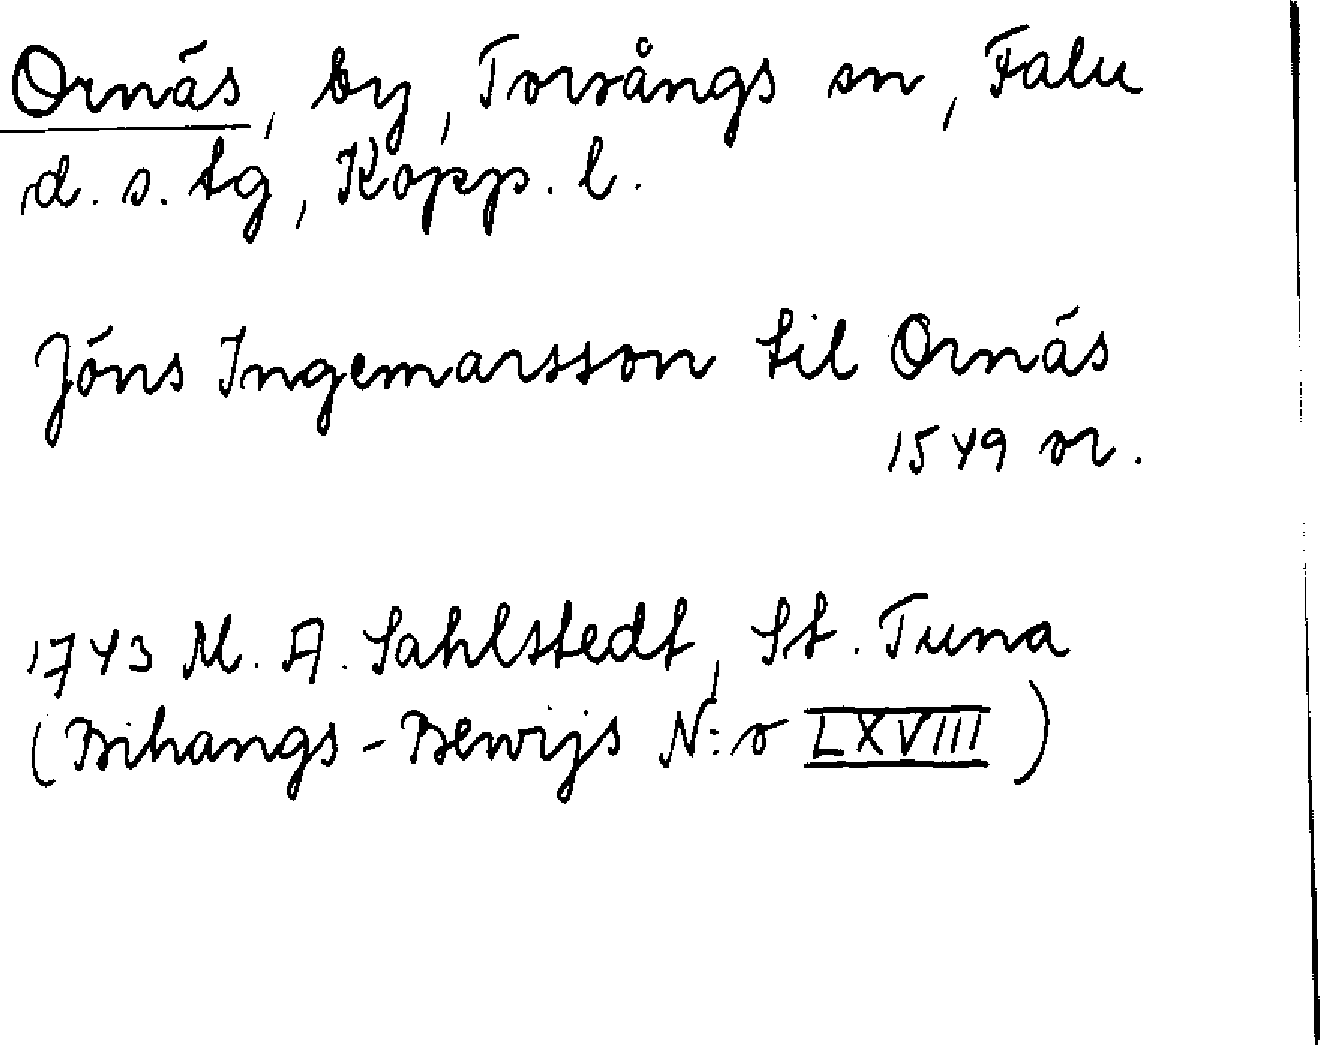 Ornäs, by, Torsångs sn, Falu
d. s. tg, Kopp. l.
Jöns Ingemarsson til Ornäs
1549 or.
1743 M. A. Sahlstedt, St. Tuna
(Bihangs-Bewijs N:o LXVIII)